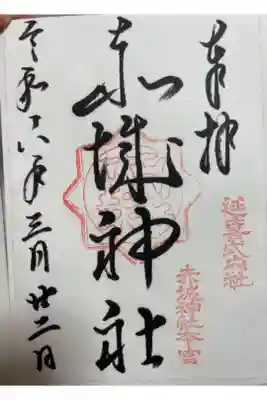 奉拝
延喜式内社
赤城神社本宮
赤城神社
令和六年三月廿二日